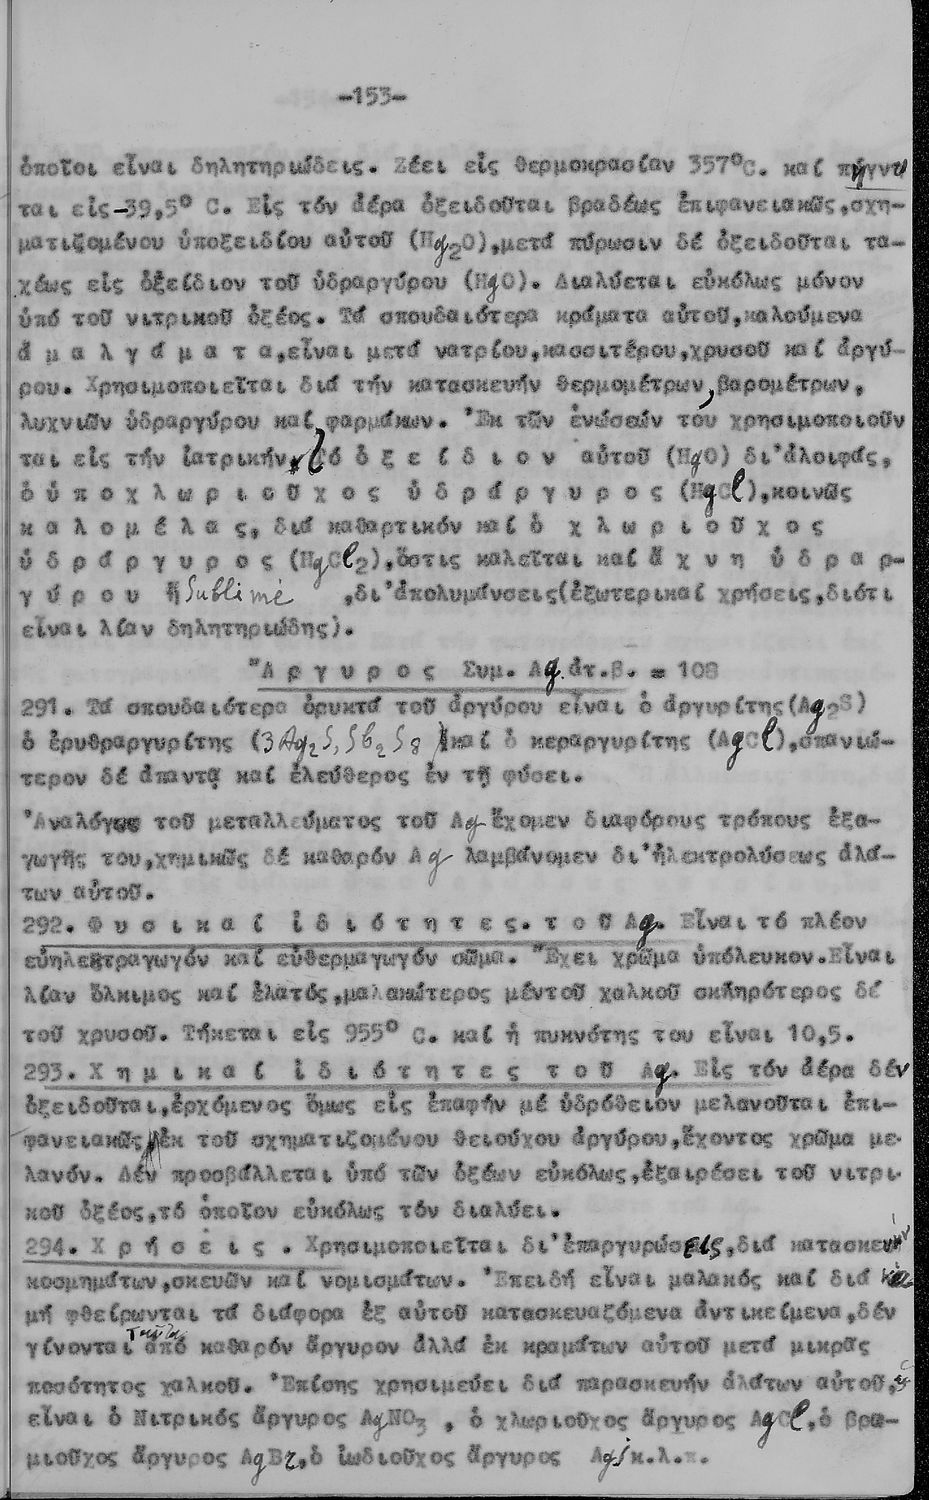 -153-
ὁποῖοι εἶναι δηλητηριώδεις. Ζέει εἰς θερμοκρασίαν 357⁰C. καί πήγνυ
ται εἰς-39,5⁰ C. Εἰς τόν ἀέρα ὀξειδοῦται βραδέως ἐπιφανειακῶς,σχη-
ματιζομένου ὑποξειδίου αὐτοῦ (Hg₂O),μετά πύρωσιν δέ ὀξειδοῦται τα-
χέως εἰς ὀξείδιον τοῦ ὑδραργύρου (HgO). Διαλύεται εὐκόλως μόνον
ὑπό τοῦ νιτρικοῦ ὀξέος. Τά σπουδαιότερα κράματα αὐτοῦ,καλούμενα
ἀ μ α λ γ ά μ α τ α,εἶναι μετά νατρίου,κασσιτέρου,χρυσοῦ καί ἀργύ-
ρου. Χρησιμοποιεῖται διά τήν κατασκευήν θερμομέτρων,βαρομέτρων,
λυχνιῶν ὑδραργύρου καί φαρμάκων. Ἐκ τῶν ἑνώσεών του χρησιμοποιοῦν
ται εἰς τήν ἰατρικήν, Τό ὀ ξ ε ί δ ι ο ν αὐτοῦ (HgO) δι'ἀλοιφάς,
ὁ ὑ π ο χ λ ω ρ ι ο ῦ χ ο ς ὑ δ ρ ά ρ γ υ ρ ο ς (HgCl),κοινῶς
κ α λ ο μ έ λ α ς, διά καθαρτικόν καί ὁ χ λ ω ρ ι ο ῦ χ ο ς
ὑ δ ρ ά ρ γ υ ρ ο ς (HgCl₂),ὅστις καλεῖται καί ἄ χ ν η ὑ δ ρ α ρ-
γ ύ ρ ο υ ἤ Sublimé ,δι'ἀπολυμάνσεις(ἐξωτερικαί χρήσεις,διότι
εἶναι λίαν δηλητηριώδης).
Ἄ ρ γ υ ρ ο ς Συμ. Ag ἀτ.β. = 108
291. Τά σπουδαιότερα ὀρυκτά τοῦ ἀργύρου εἶναι ὁ ἀργυρίτης(Ag₂S)
ὁ ἐρυθραργυρίτης (3Ag₂S,Sb₂S₈) καί ὁ κεραργυρίτης (AgCl),σπανιώ-
τερον δέ ἀπαντᾷ καί ἐλεύθερος ἐν τῇ φύσει.
Ἀναλόγως τοῦ μεταλλεύματος τοῦ Ag ἔχομεν διαφόρους τρόπους ἐξα-
γωγῆς του,χημικῶς δέ καθαρόν Ag λαμβάνομεν δι'ἠλεκτρολύσεως ἁλά-
των αὐτοῦ.
292. Φ υ σ ι κ α ί ἰ δ ι ό τ η τ ε ς. τ ο ῦ Ag. Εἶναι τό πλέον
εὐηλεκτραγωγόν καί εὐθερμαγωγόν σῶμα. Ἔχει χρῶμα ὑπόλευκον.Εἶναι
λίαν ὅλκιμος καί ἐλατός,μαλακώτερος μέντοῦ χαλκοῦ σκληρότερος δέ
τοῦ χρυσοῦ. Τήκεται εἰς 955⁰ C. καί ἡ πυκνότης του εἶναι 10,5.
293. Χ η μ ι κ α ί ἰ δ ι ό τ η τ ε ς τ ο ῦ Ag. Εἰς τόν ἀέρα δέν
ὀξειδοῦται,ἐρχόμενος ὅμως εἰς ἐπαφήν μέ ὑδρόθειον μελανοῦται ἐπι-
φανειακῶς ἐκ τοῦ σχηματιζομένου θειούχου ἀργύρου,ἔχοντος χρῶμα με-
λανόν. Δέν προσβάλλεται ὑπό τῶν ὀξέων εὐκόλως,ἐξαιρέσει τοῦ νιτρι-
κοῦ ὀξέος,τό ὁποῖον εὐκόλως τόν διαλύει.
294. Χ ρ ή σ ε ι ς . Χρησιμοποιεῖται δι'ἐπαργυρώσεις,διά κατασκευήν
κοσμημάτων,σκευῶν καί νομισμάτων. Ἐπειδή εἶναι μαλακός καί διά νά
μή φθείρωνται τά διάφορα ἐξ αὐτοῦ κατασκευαζόμενα ἀντικείμενα,δέν
γίνονται ταῦτα ἀπό καθαρόν ἄργυρον ἀλλά ἐκ κραμάτων αὐτοῦ μετά μικρᾶς
ποσότητος χαλκοῦ. Ἐπίσης χρησιμεύει διά παρασκευήν ἁλάτων αὐτοῦ,ὡς
εἶναι ὁ Νιτρικός ἄργυρος AgNO₃ , ὁ χλωριοῦχος ἄργυρος AgCl,ὁ βρω-
μιοῦχος ἄργυρος AgBr,ὁ ἰωδιοῦχος ἄργυρος Agj κ.λ.π.